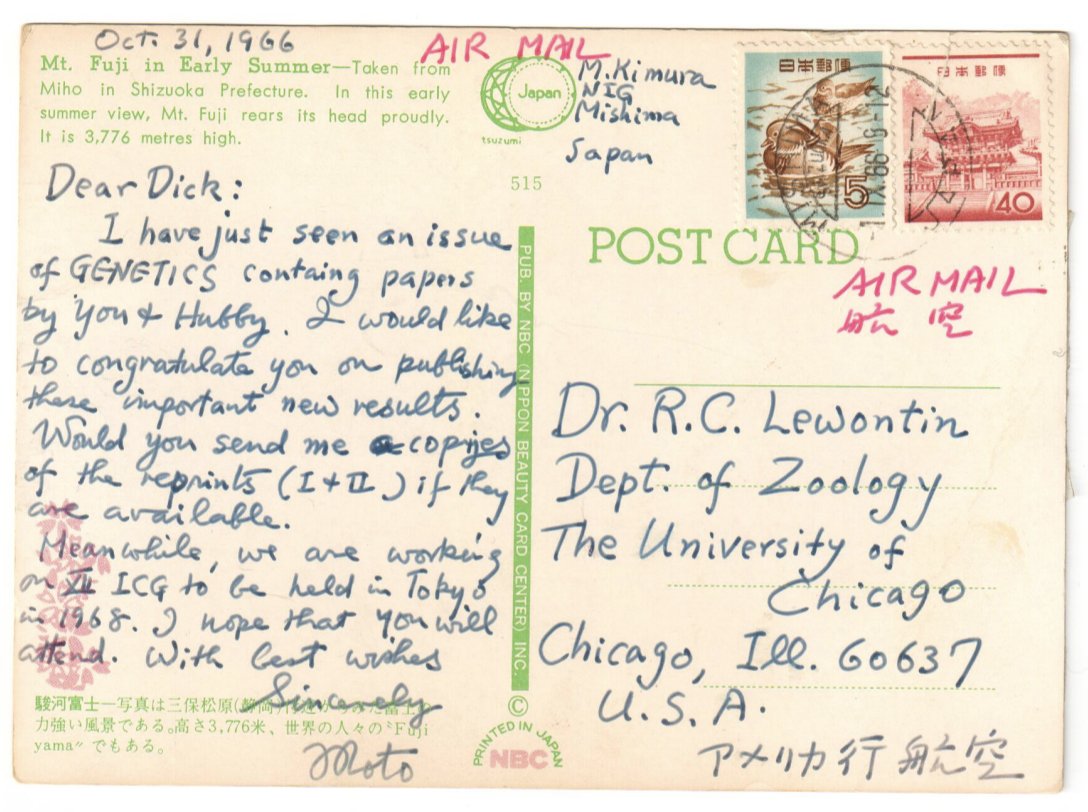 Oct. 31, 1966
Mt. Fuji in Early Summer—Taken from
Miho in Shizuoka Prefecture. In this early
summer view, Mt. Fuji rears its head proudly.
It is 3,776 metres high.
Dear Dick:
I have just seen an issue
of GENETICS containg papers
by You & Hubby. I would like
to congratulate you on publishing
these important new results.
Would you send me copies
of the reprints (I + II) if they
are available.
Meanwhile, we are working
on XII ICG to be held in Tokyo
in 1968. I hope that you will
attend. With best wishes
Sincerely
Moto
駿河富士—写真は三保松原(静岡)
力強い風景である。高さ3,776米、世界の人々の〝Fuji
yama〟でもある。
AIR MAIL
Japan
tsuzumi
515
M. Kimura
NIG
Mishima
Japan
日本郵便
5
日本郵便
40
POST CARD
AIR MAIL
航空
PUB. BY NBC (NIPPON BEAUTY CARD CENTER) INC.
Dr. R.C. Lewontin
Dept. of Zoology
The University of
Chicago
Chicago, Ill. 60637
U.S.A.
アメリカ行 航空
©
PRINTED IN JAPAN
NBC